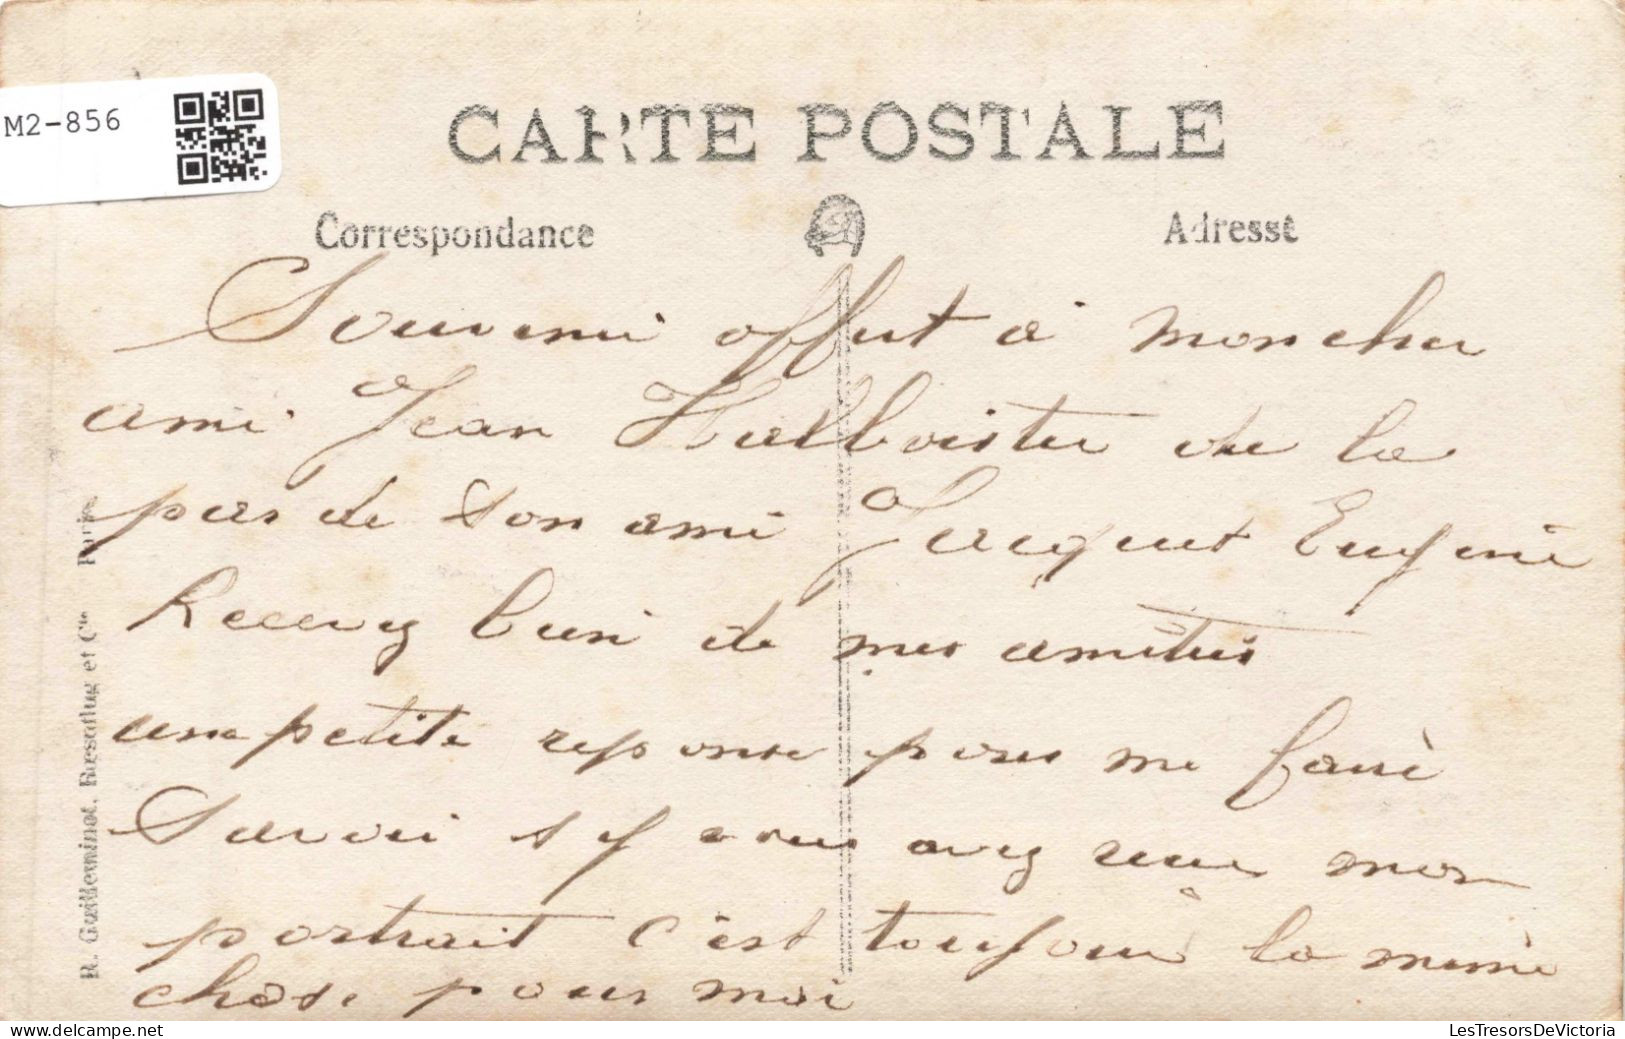 M2-856
CARTE POSTALE
Correspondance
Adresse
Souveni offert a moncher
ami Jean Halbvister de la
par de son ami Jacquet Eugenie
Recevez bien de mes amities
une petite reponse pour me faire
Savoir si vous avez reçu mon
portrait c'est toujour la meme
chose pour moi
R. Guilleminot, Bœspflug et Cie Paris
LesTresorsDeVictoria